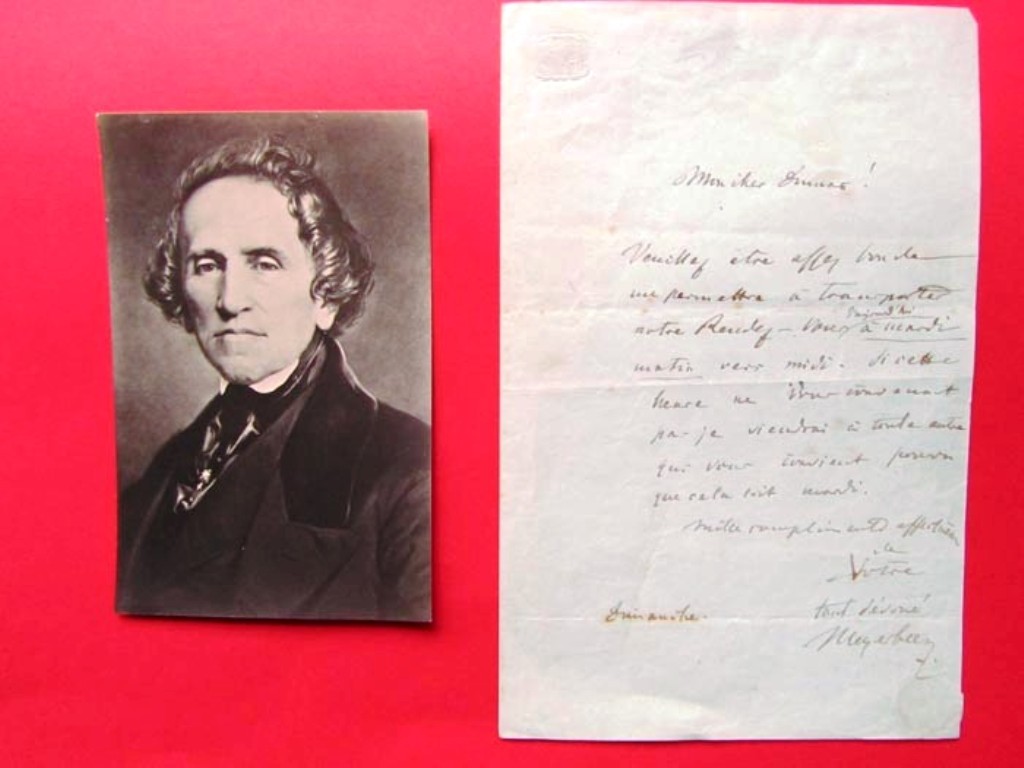 Mon cher
Veuillez être assez bon de
me permettre à transporter
aujourd'hui
notre Rendez-Vous à mardi
matin vers midi. Si cette
heure ne Vous convenait
pas je viendrai à toute autre
qui vous convient pourvu
que cela soit mardi.
Mille compliments affectueux
Votre
tout dévoué
Meyerbeer
Dimanche.